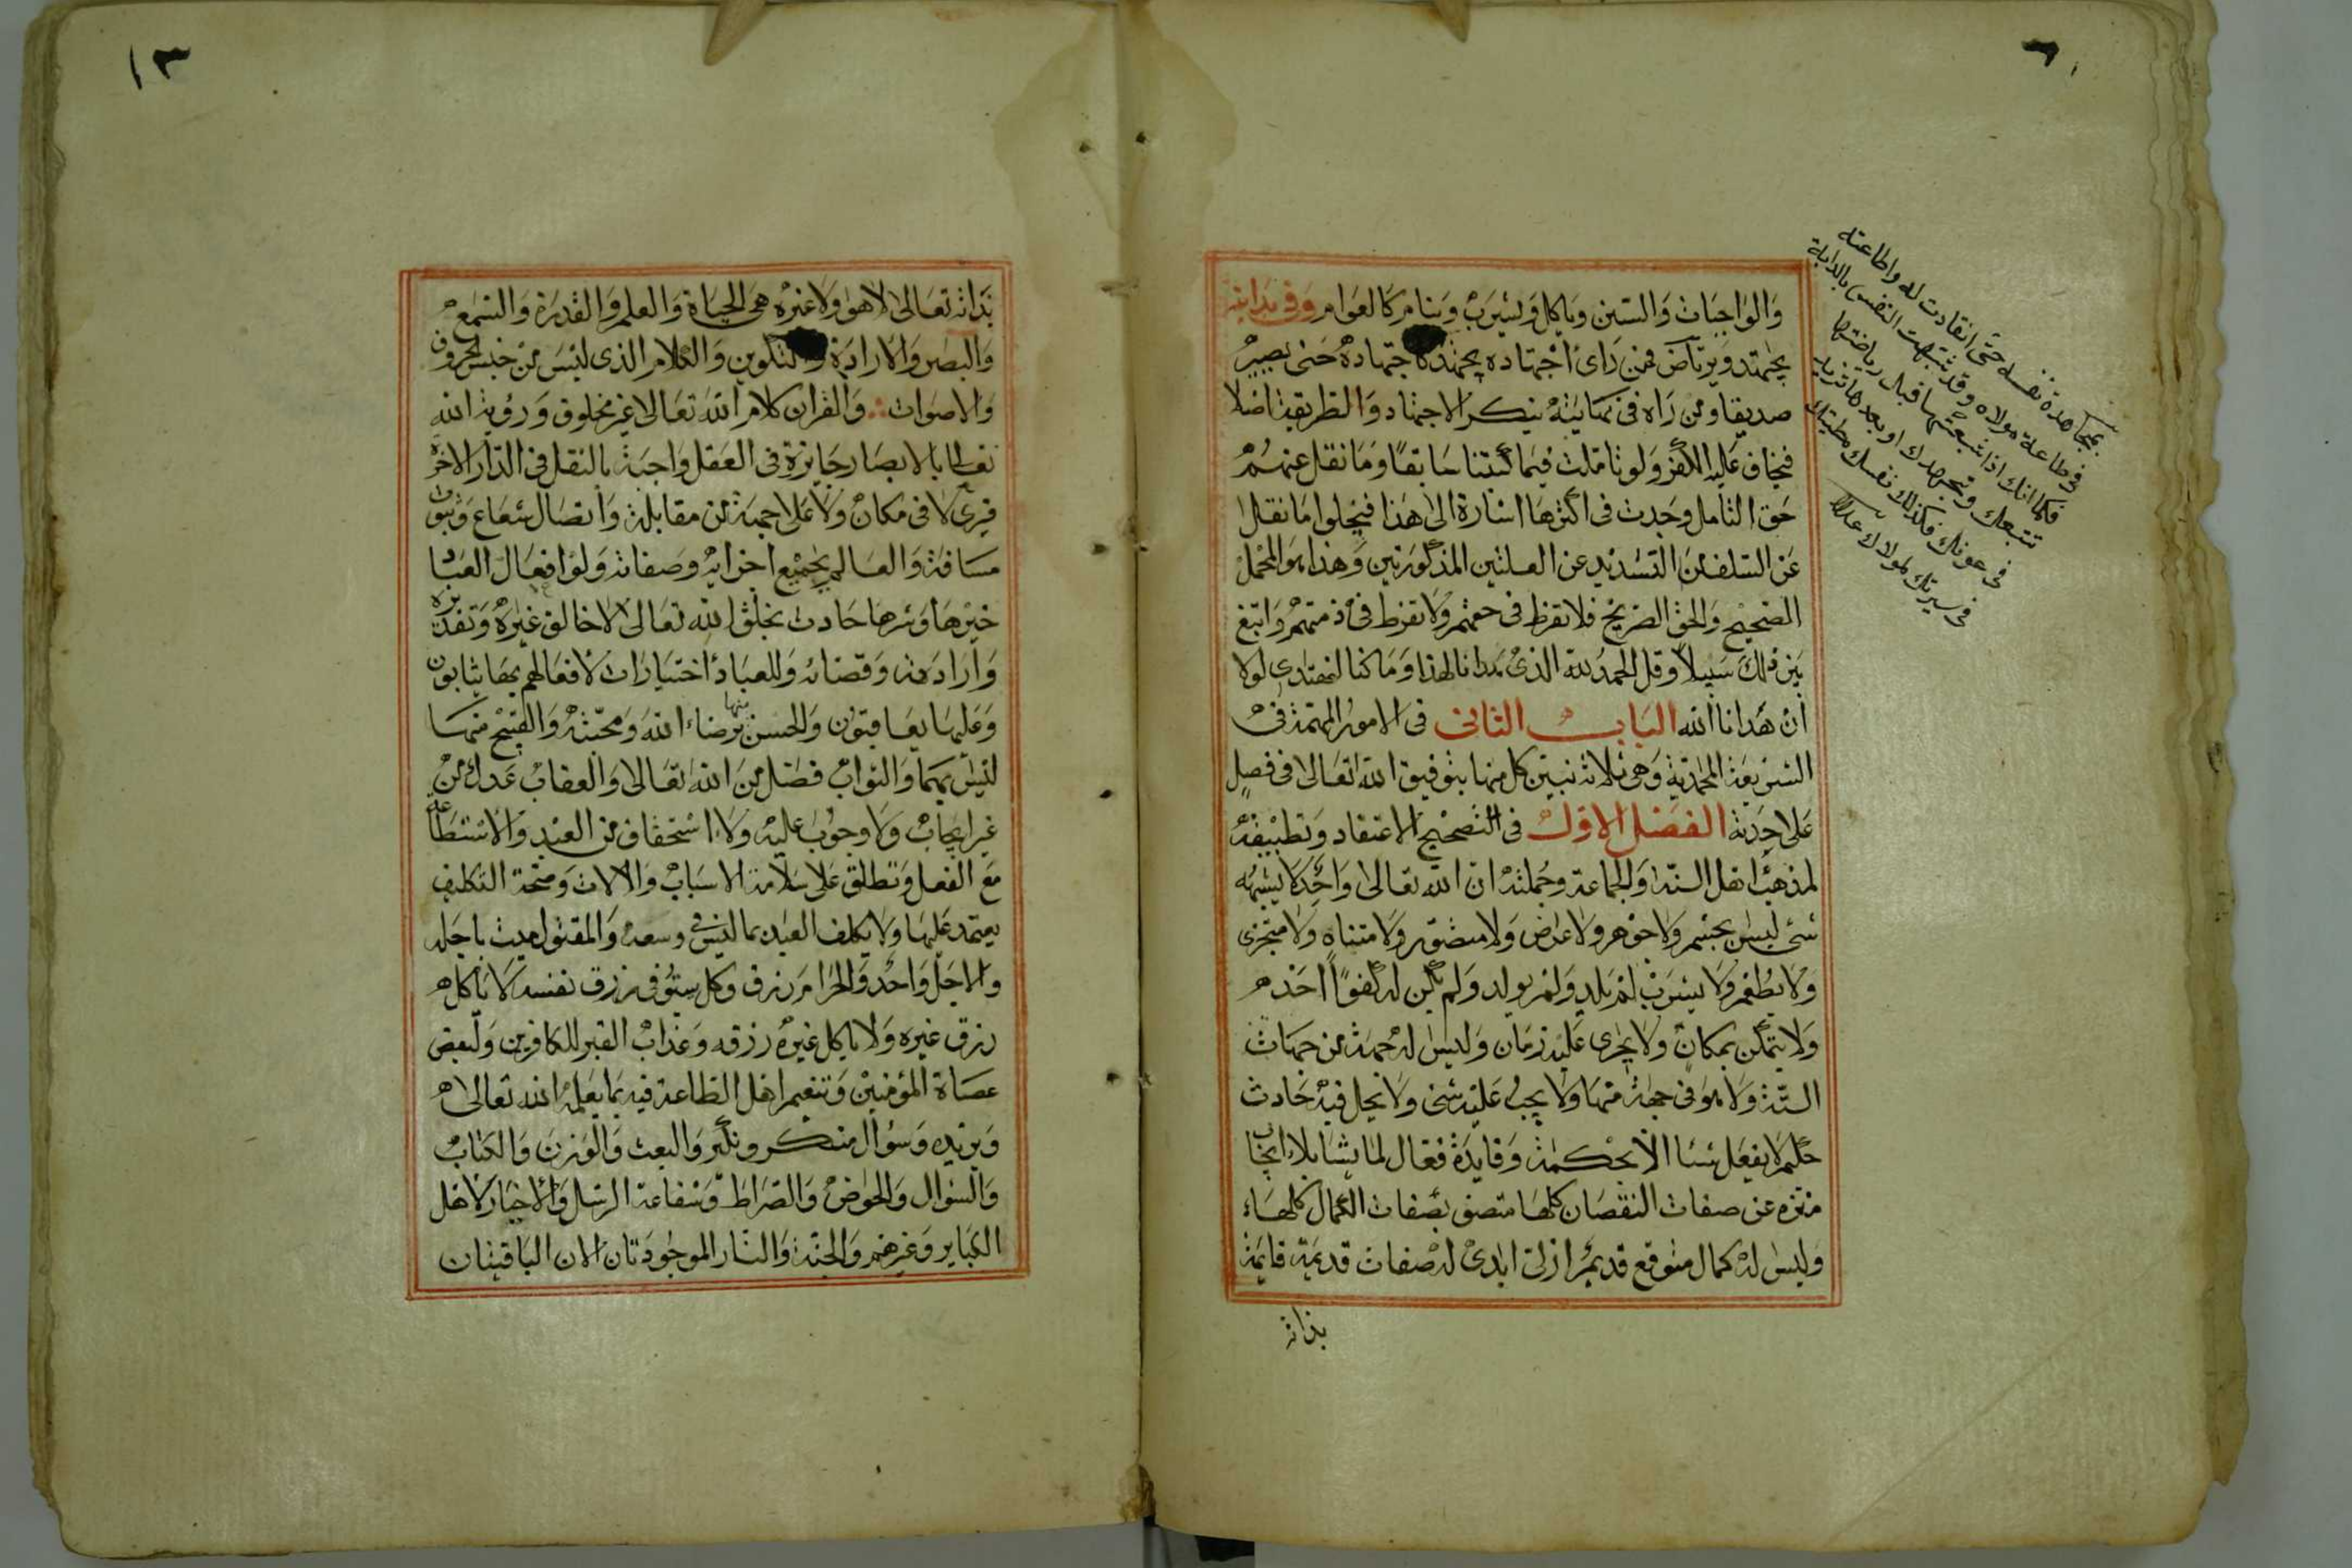 والواجبات والسنن وياكل ويشرب وينام كالعوام وفى بدايته
يجتهد ويرتاض فمن راى اجتهاده يجتهد كاجتهاده حتى يصير
صديقا ومن راه فى نهايته ينكر الاجتهاد والطريقة اصلا
فيخاف عليه الكفر ولو تاملت فيما كتبنا سابقا وما نقل عنهم
حق التامل وجدت فى اكثرها اشارة الى هذا فيحلوا ما نقل
عن السلف من التشديد عن العلتين المذكورتين وهذا هو المحمل
الصحيح والحق الصريح فلا تفرط فى حقهم ولا تفرط فى ذمتهم وابتغ
بين ذلك سبيلا وقل الحمد لله الذى هدانا لهذا وما كنا لنهتدى لولا
ان هدانا الله الباب الثانى فى الامور المهمة فى
الشريعة المحمدية وهى ثلاثة نبين كل منها بتوفيق الله تعالى فى فصل
على حدة الفصل الاول فى التصحيح الاعتقاد وتطبيقه
لمذهب اهل السنة والجماعة وجملته ان الله تعالى واحد لا يشبهه
شئ ليس بجسم ولا جوهر ولا عرض ولا مصور ولا متناه ولا متجزى
ولا يطعم ولا يشرب لم يلد ولم يولد ولم يكن له كفوا احد
ولا يتمكن بمكان ولا يجرى عليه زمان وليس له جهة من جهات
الستة ولا هو فى جهة منها ولا يجب عليه شئ ولا يحل فيه حادث
حكيم لا يفعل شئا الا بحكمة وفايدة فعال لما يشا بلا ايجاب
منزه عن صفات النقصان كلها متصف بصفات الكمال كلها
وليس له كمال متوقع قديم ازلى ابدى له صفات قديمة قايمة
بذاته
بمجاهدة نفسه حتى انقادت له واطاعته
فى طاعة مولاه وقد شبهت النفس بالدابة
فكما انك اذا شبعتها قبل رياضتها
تتبعك وتجهدك او بعدها تزيد
فى عونك فكذلك نفسك مطيتك
فى سيرتك لمولاك
١٣
بذاته تعالى لا هو ولا غيره هى الحياة والعلم والقدرة والسمع
والبصر والارادة والتكوين والكلام الذى ليس من جنس الحروف
والاصوات والقران كلام الله تعالى غير مخلوق ورؤية الله
تعالى بالابصار جايزة فى العقل واجبة بالنقل فى الدار الاخرة
فيرى لا فى مكان ولا على جهة من مقابلة واتصال شعاع وثبوت
مسافة والعالم بجميع اجزائه وصفاته ولو افعال العباد
خيرها وشرها حادث بخلق الله تعالى لا خالق غيره وتقديره
وارادته وقضائه وللعباد اختيارات لافعالهم بها يثابون
وعليها يعاقبون والحسن منها برضاء الله ومحبته والقبيح منها
ليس بهما والثواب فضل من الله تعالى والعقاب عدل من
غير ايجاب ولا وجوب عليه ولا استحقاق من العبد والاستطاعة
مع الفعل وتطلق على سلامة الاسباب والالات وصحة التكليف
يعتمد عليها ولا يكلف العبد بما ليس فى وسعه والمقتول ميت باجله
والاجل واحد والحرام رزق وكل يستوفى رزق نفسه لا ياكل
رزق غيره ولا ياكل غيره رزقه وعذاب القبر للكافرين ولبعض
عصاة المؤمنين وتنعيم اهل الطاعة فيه بما يعلمه الله تعالى
ويريده وسؤال منكر ونكير والبعث والوزن والكتاب
والسؤال والحوض والصراط وشفاعة الرسل والاخيار لاهل
الكباير وغيرهم والجنة والنار الموجودتان الان الباقيتان